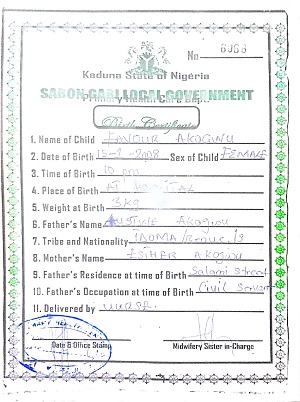 No 6068
Kaduna State of Nigeria
SABON GARI LOCAL GOVERNMENT
Primary Health Care Dept.
Birth Certificate
1. Name of Child FAVOUR AKOGWU
2. Date of Birth 15-1-2008 Sex of Child FEMALE
3. Time of Birth 10 pm
4. Place of Birth AT HOSPITAL
5. Weight at Birth 3kg
6. Father's Name AKOGWU
7. Tribe and Nationality IDOMA
8. Mother's Name ESTHER AKOGWU
9. Father's Residence at time of Birth Salami street
10. Father's Occupation at time of Birth Civil Servant
11. Delivered by NURSE.
Date & Office Stamp
Midwifery Sister in-Charge